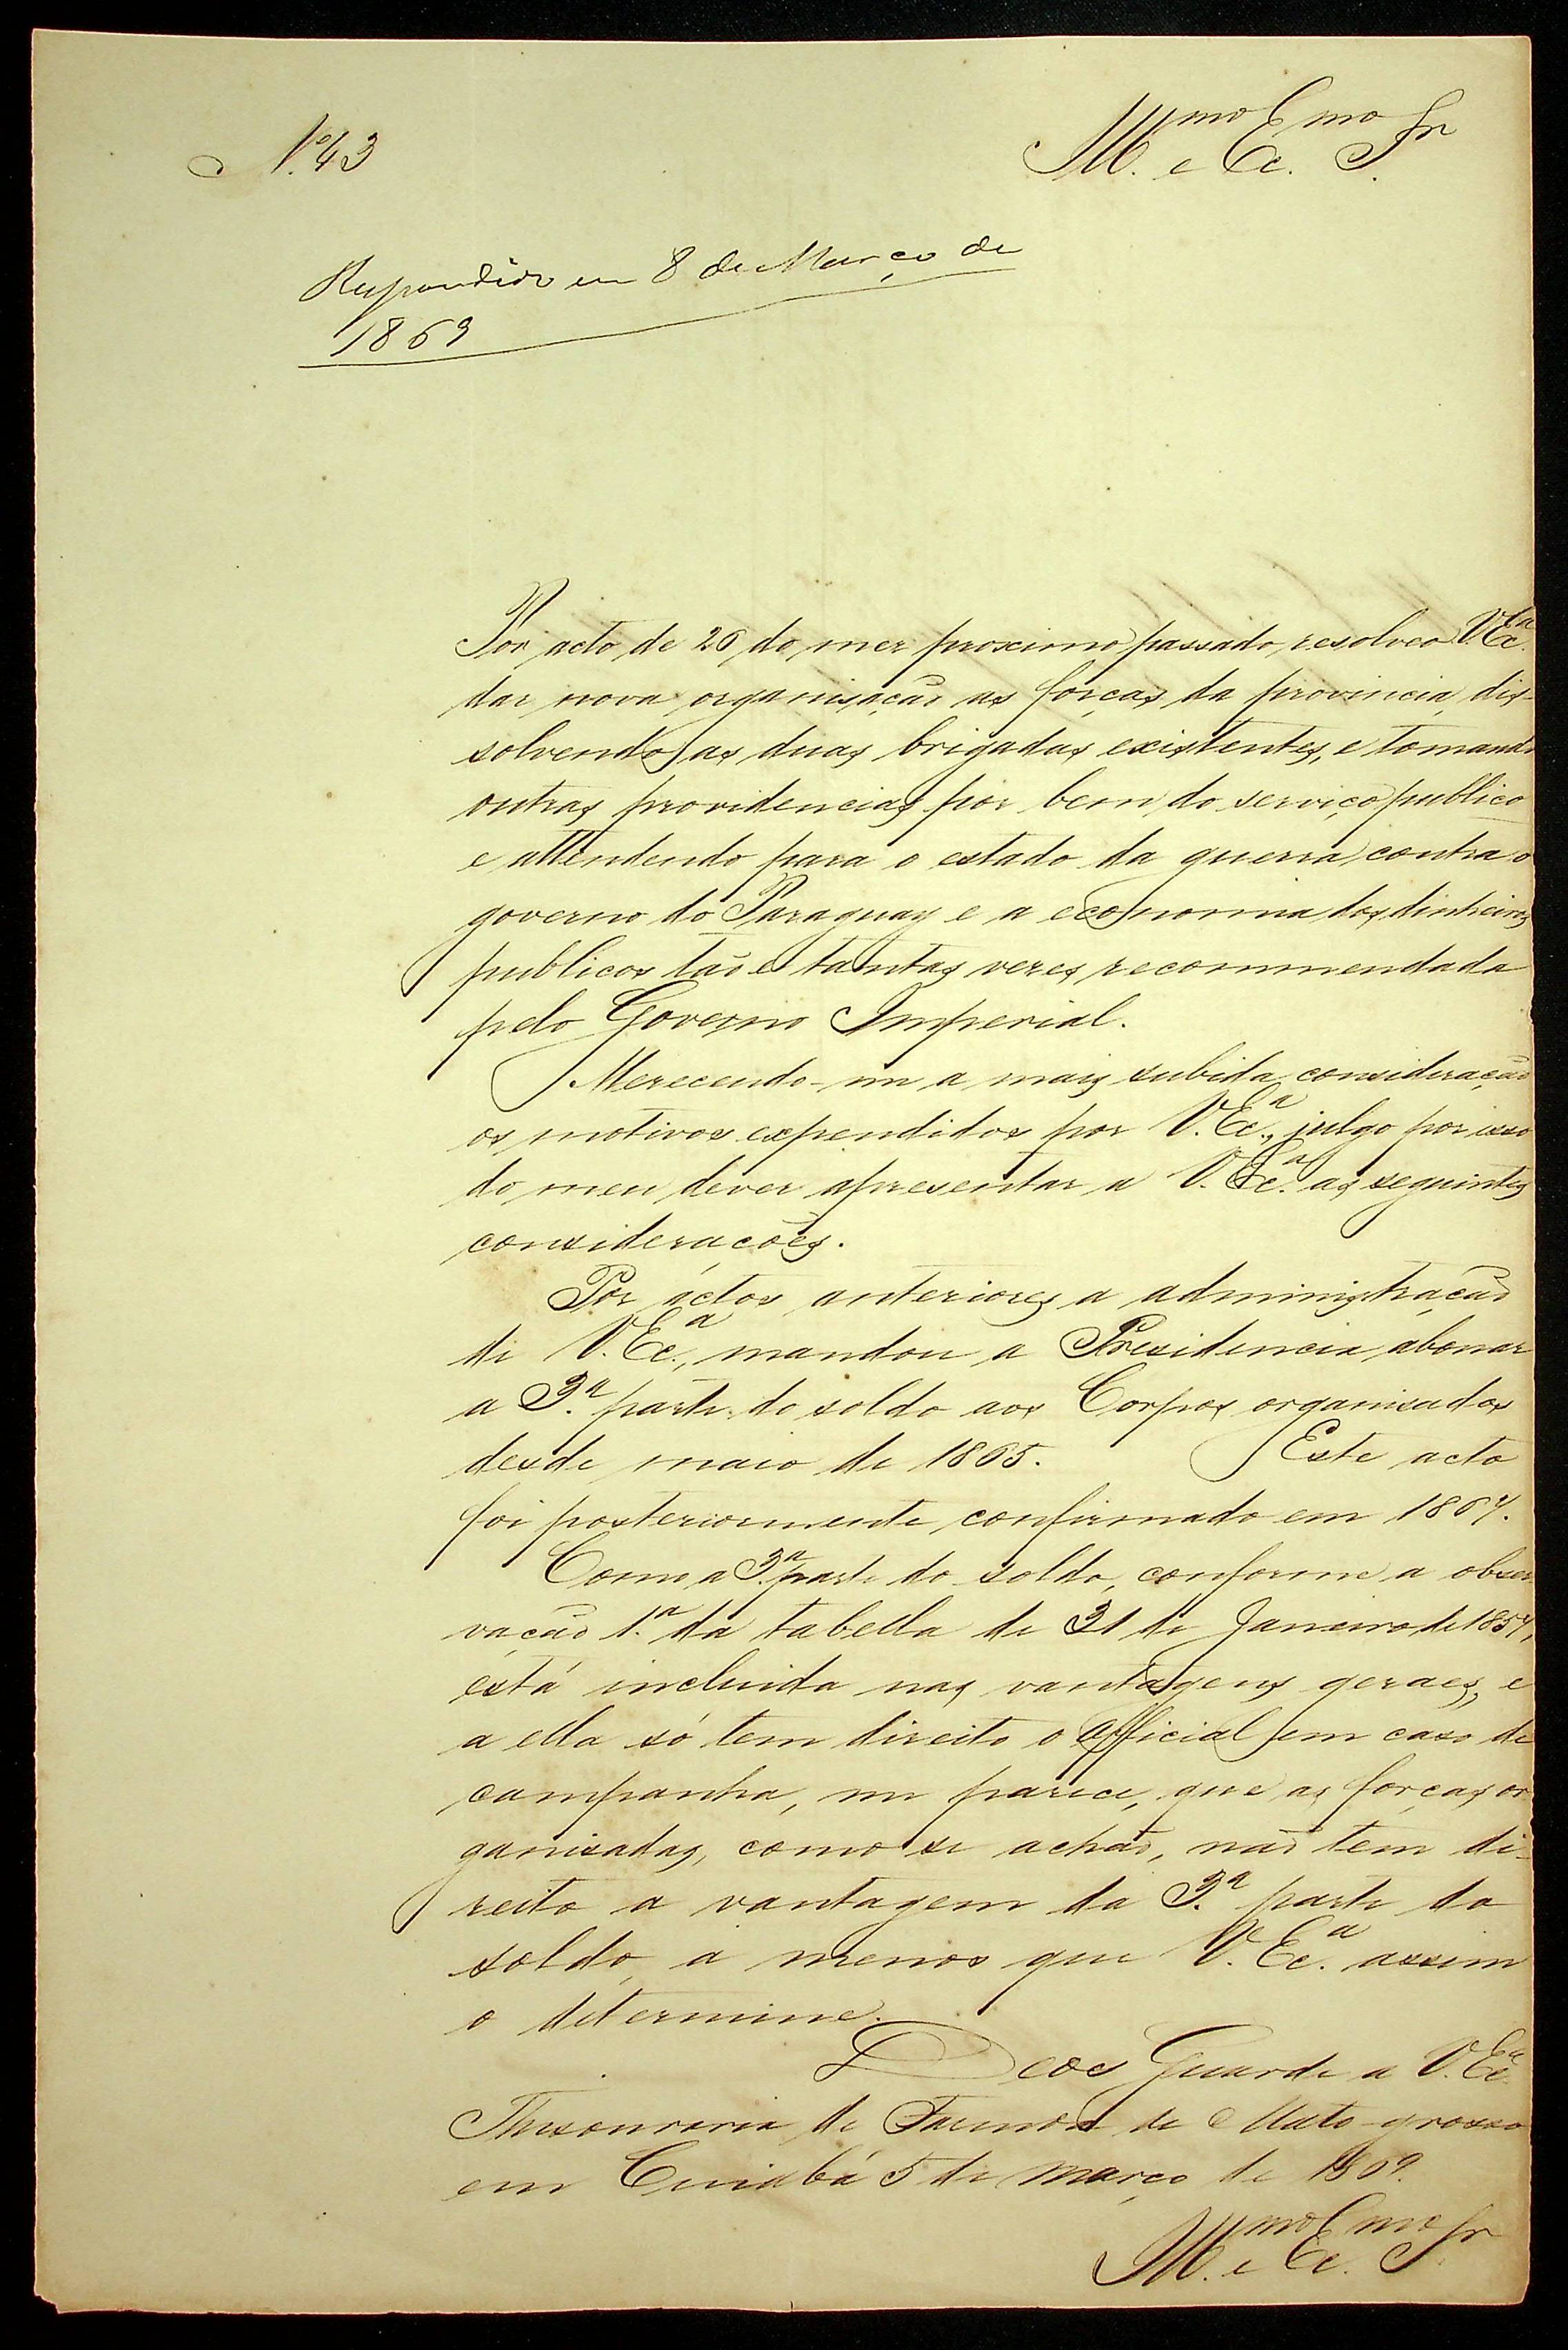 N.º 43
Ill.mo e Ex.mo Sr.
Respondido em 8 de Março de
1869
Por acto de 26 do mez proximo passado, resolveo V. Ex.ª
dar nova organisação as forças da provincia, dis-
solvendo as duas brigadas existentes, e tomando
outras providencias por bem do serviço publico
e attendendo para o estado da guerra contra o
governo do Paraguay e a economia dos dinheiros
publicos tão e tantas vezes recommendada
pelo Governo Imperial.
Merecendo-me a mais subida consideração
os motivos expendidos por V. Ex.ª, julgo por isso
do meu dever apresentar a V. Ex.ª as seguintes
considerações.
Por actos anteriores a administração
de V. Ex.ª, mandou a Presidencia abonar
a 3.ª parte do soldo aos Corpos organisados
desde maio de 1865. Este acto
foi posteriormente confirmado em 1867.
Como a 3.ª parte do soldo, conforme a obser
vação 1.ª da tabella de 31 de Janeiro de 1857,
está incluida nas vantagens geraes, e
a ella só tem direito o official em caso de
campanha, me parece, que as forças or
ganisadas, como se achão, não tem di-
reito a vantagem da 3.ª parte do
soldo, a menos que V. Ex.ª assim
o determine.
Deos Guarde a V. Ex.ª
Thesouraria de Fazenda de Mato-grosso
em Cuiabá 5 de março de 1869.
Ill.mo e Ex.mo Sr.